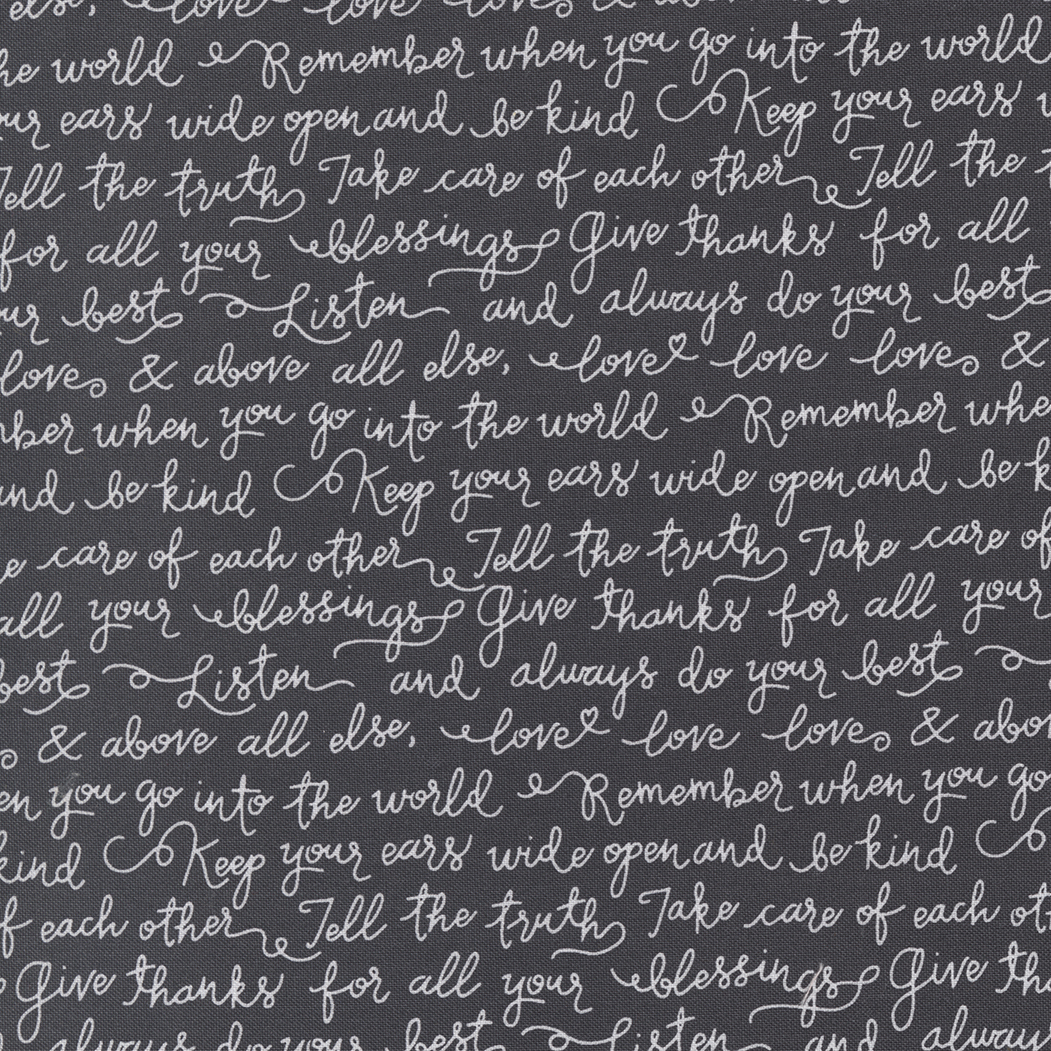 else, love love loves & above all
he world Remember when you go into the world
ur ears wide open and be kind Keep your ears
Tell the truth Take care of each other Tell the
for all your blessings Give thanks for all
ur best Listen and always do your best
love & above all else, love love love &
mber when you go into the world Remember whe
and be kind Keep your ears wide open and be k
e care of each other Tell the truth Take care of
all your blessings Give thanks for all your
best Listen and always do your best
& above all else, love love love & abov
en you go into the world Remember when you go
kind Keep your ears wide open and be kind
of each other Tell the truth Take care of each ot
Give thanks for all your blessings Give tha
always do your best Listen and alway